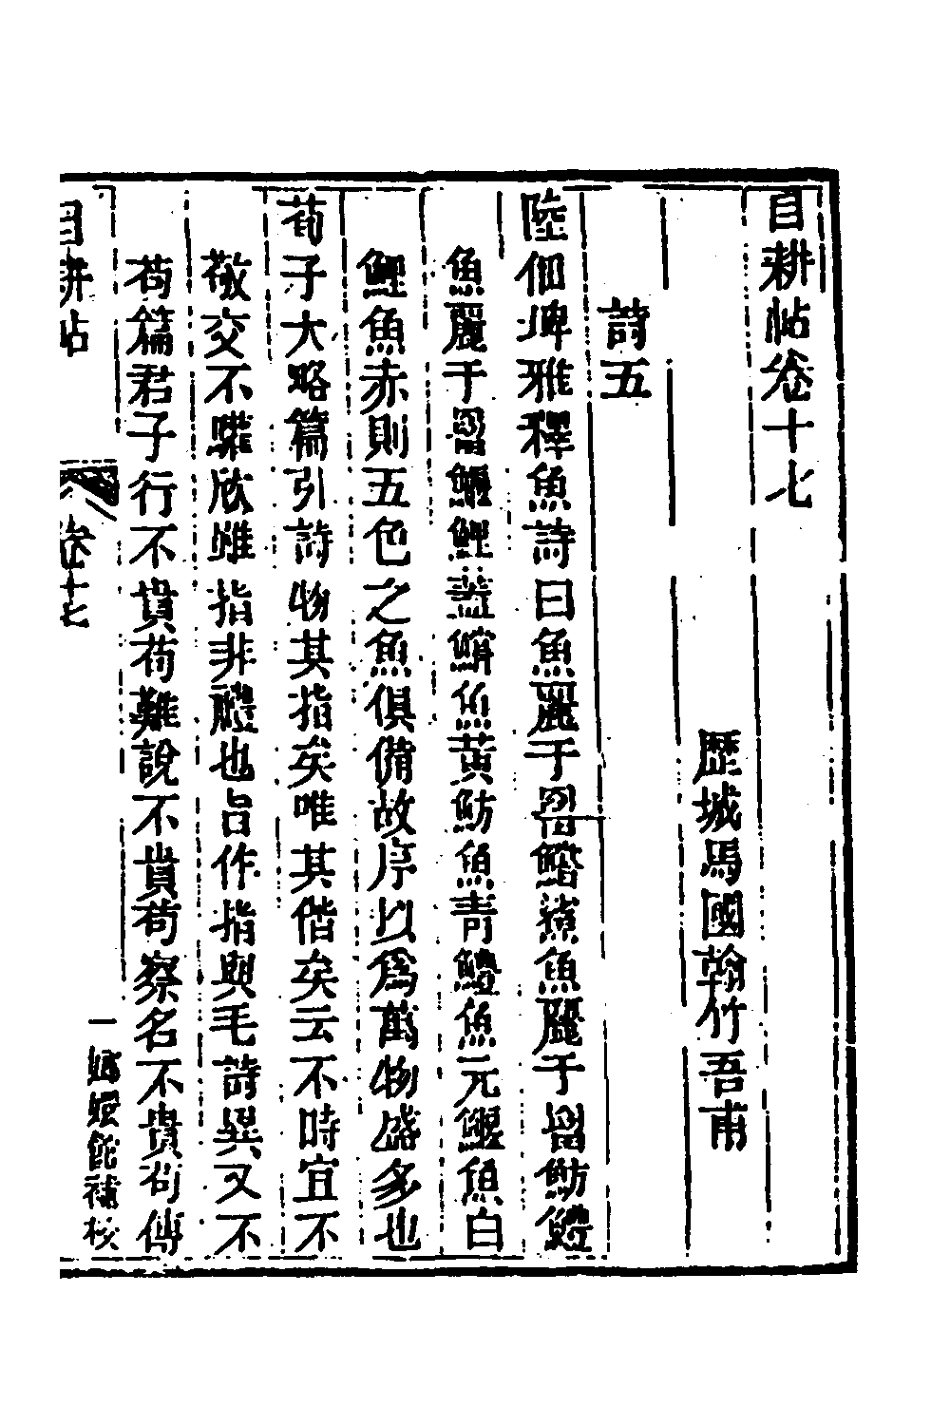 目耕帖卷十七
歷城馬國翰竹吾甫
詩五
陸佃埤雅釋魚詩曰魚麗于罶鱨鯊魚麗于罶魴鱧
魚麗于罶鰋鯉蓋鱨魚黃魴魚青鱧魚元鰋魚白
鯉魚赤則五色之魚俱備故序以爲萬物盛多也
荀子大略篇引詩物其指矣唯其偕矣云不時宜不
敬交不驩欣雖指非禮也旨作指與毛詩異又不
苟篇君子行不貴苟難說不貴苟察名不貴苟傳
目耕帖 卷十七 一 嫏嬛館補校